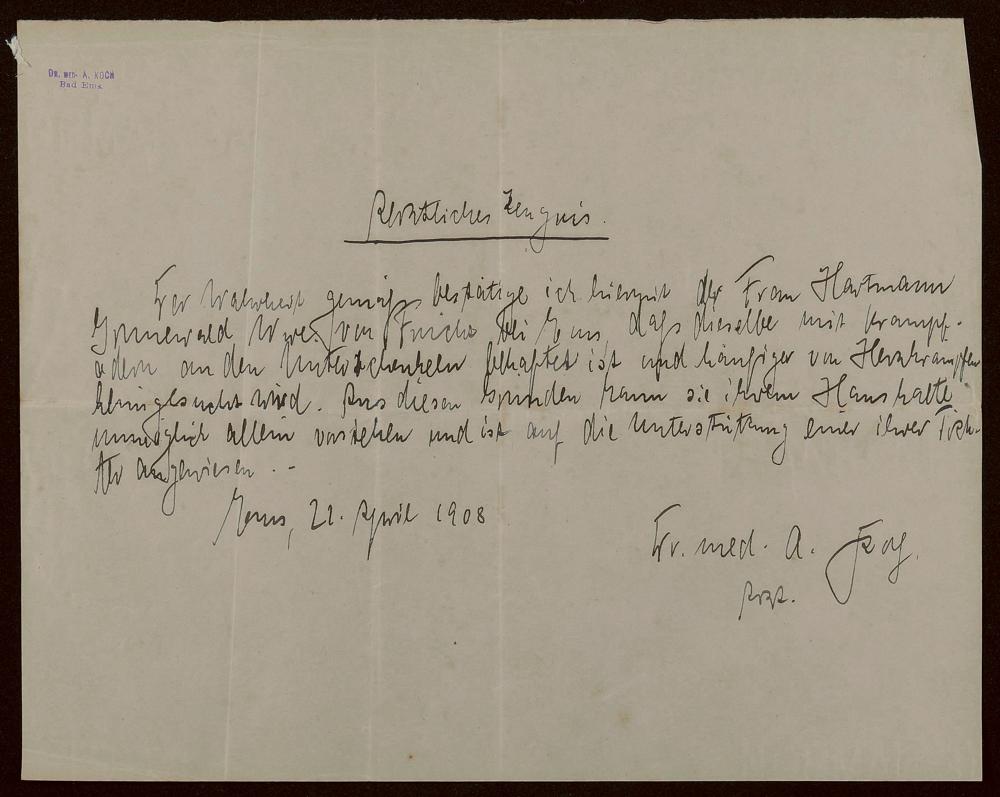 DR. MED. A. KOCH
Bad Ems
Aerztliches Zeugnis.
Der Wahrheit gemäß bestätige ich hiermit der Frau Hartmann
Grunewald Wwe. von bei Ems, daß dieselbe mit Krampf-
adern an den Unterschenkeln behaftet ist und häufiger von Herzkrämpfen
heimgesucht wird. Aus diesen Gründen kann sie ihrem Haushalte
unmöglich allein vorstehen und ist auf die Unterstützung einer ihrer Töch-
ter angewiesen. -
Ems, 22. April 1908
Dr. med. A. Koch.
Arzt.